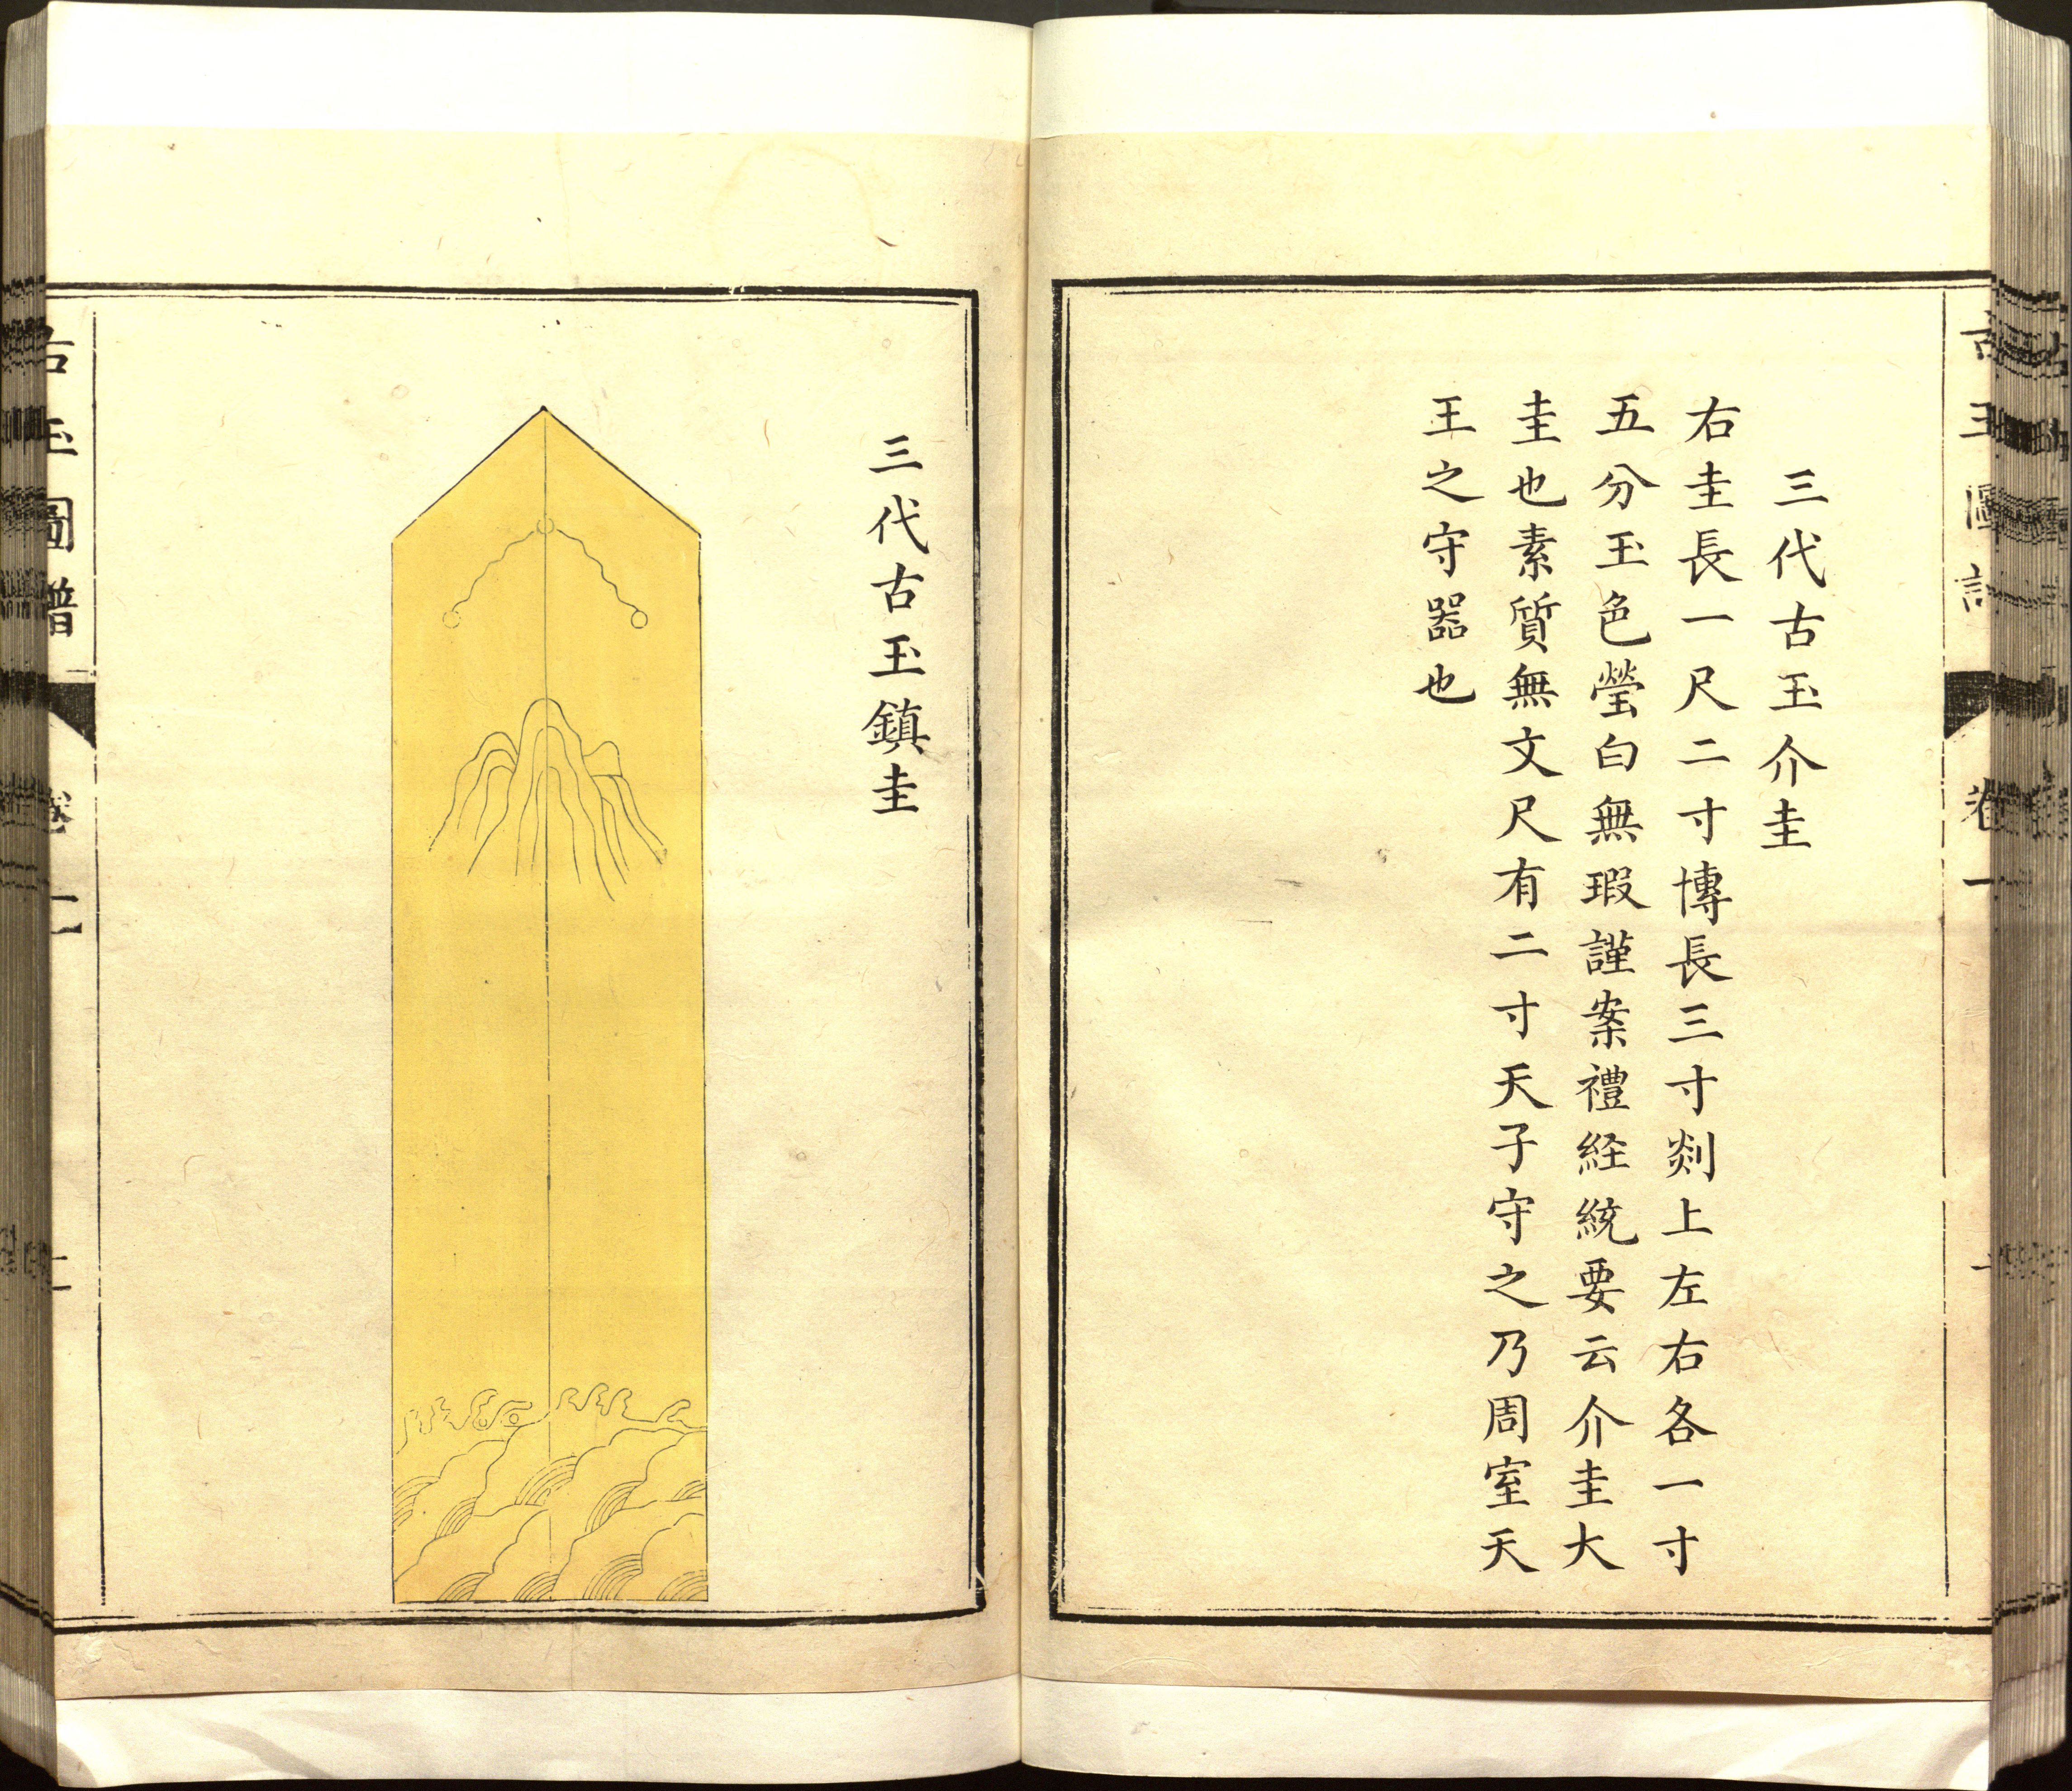 三代古玉介圭
右圭長一尺二寸博長三寸剡上左右各一寸
五分玉色瑩白無瑕謹案禮経統要云介圭大
圭也素質無文尺有二寸天子守之乃周室天
王之守器也
三代古玉鎮圭
古玉圖譜